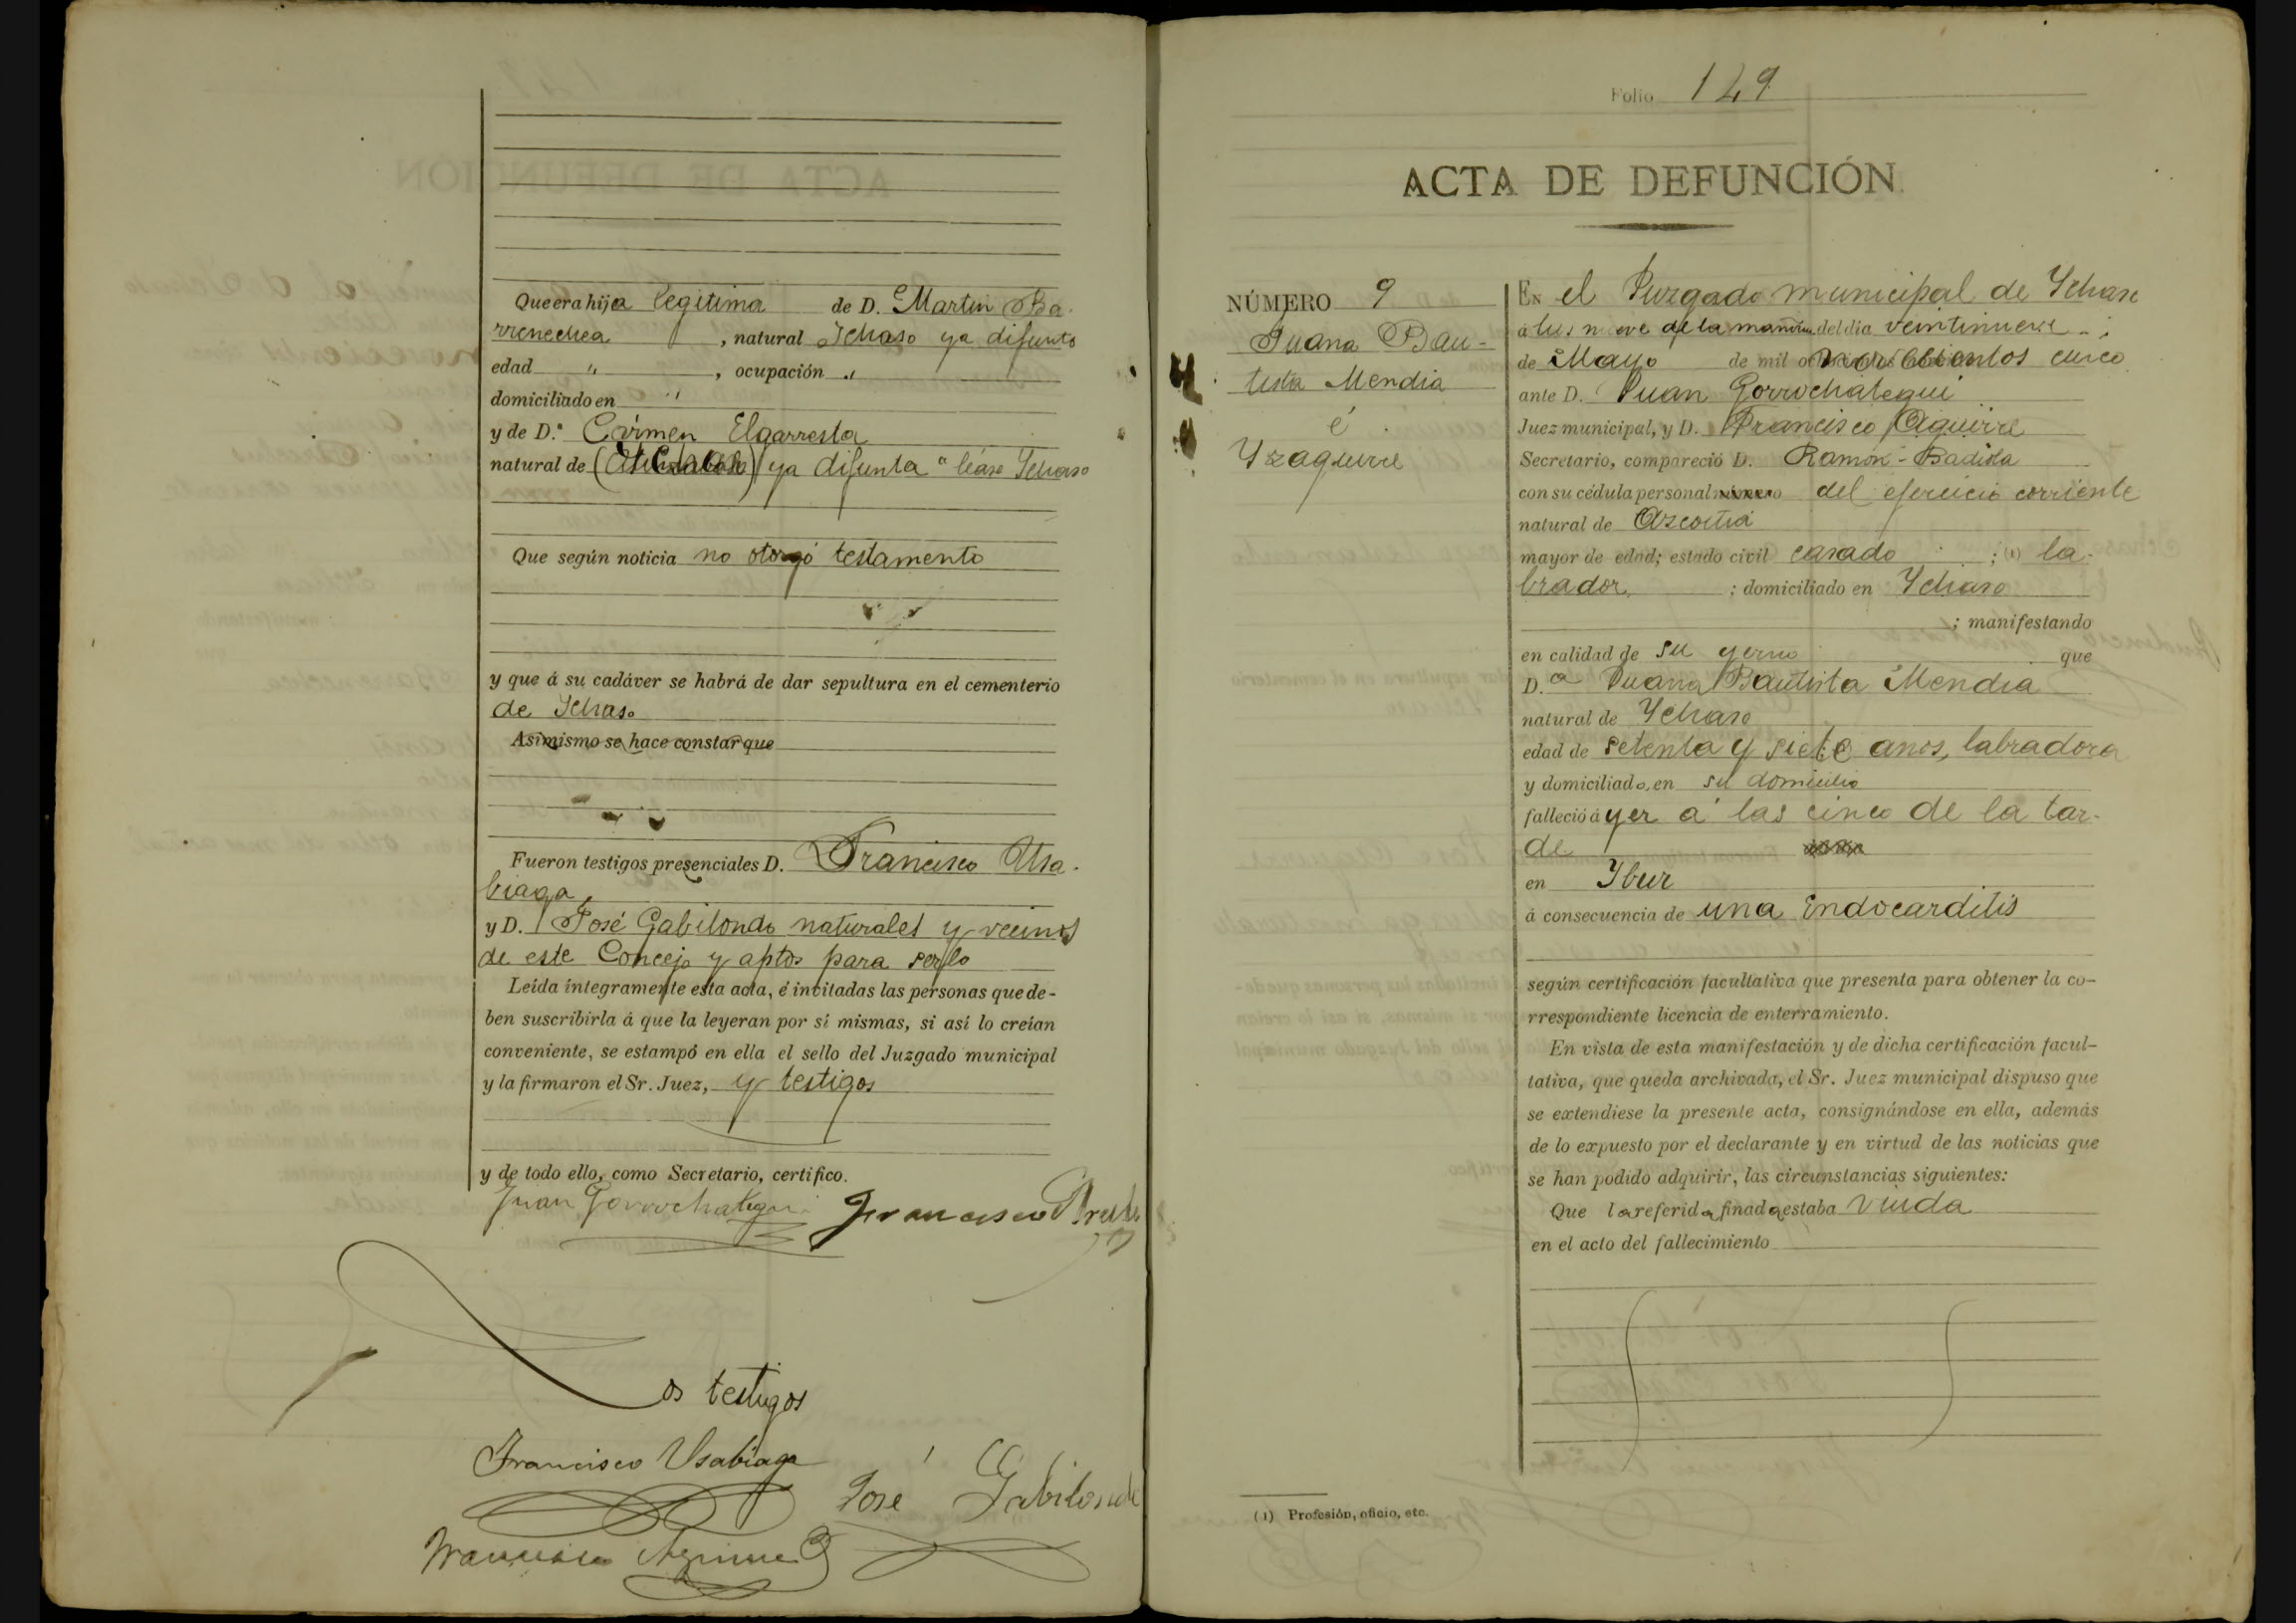 Que era hija legitima de D. Martin Ba-
rrenechea, natural Ichaso ya difunto
edad " , ocupación "
domiciliado en "
y de D.ª Cármen Elgarresta
natural de ( ) ya difunta "léase Ichaso
Que según noticia no otorgó testamento
y que á su cadáver se habrá de dar sepultura en el cementerio
de Ichaso
Asimismo se hace constar que
Fueron testigos presenciales D. Francisco Usa-
biaga,
y D. José Gabilondo naturales y vecinos
de este Concejo y aptos para serlo
Leída íntegramente esta acta, é invitadas las personas que de-
ben suscribirla á que la leyeran por sí mismas, si así lo creían
conveniente, se estampó en ella el sello del Juzgado municipal
y la firmaron el Sr. Juez, y testigos
y de todo ello, como Secretario, certifico.
Juan Gorrochategui Francisco
Los testigos
Francisco Usabiaga
José Gabilondo
Francisco Aguirre
Folio 149
ACTA DE DEFUNCIÓN
NÚMERO 9
Juana Bau-
tista Mendia
é
Yzaguirre
En el Juzgado municipal de Ychaso
á las nueve de la mañana del día veintinueve
de Mayo de mil novecientos cinco
ante D. Juan Gorrochategui
Juez municipal, y D. Francisco Aguirre
Secretario, compareció D. Ramón Badiola
con su cédula personal número del ejercicio corriente
natural de Azcoitia
mayor de edad; estado civil casado ; (1) la-
brador ; domiciliado en Ychaso
; manifestando
en calidad de su yerno que
D.ª Juana Bautista Mendia
natural de Ychaso
edad de setenta y siete anos, labradora
y domiciliado, en su domicilio
falleció áyer á las cinco de la tar-
de
en Ybur
á consecuencia de una Endocarditis
según certificación facultativa que presenta para obtener la co-
rrespondiente licencia de enterramiento.
En vista de esta manifestación y de dicha certificación facul-
tativa, que queda archivada, el Sr. Juez municipal dispuso que
se extendiese la presente acta, consignándose en ella, además
de lo expuesto por el declarante y en virtud de las noticias que
se han podido adquirir, las circunstancias siguientes:
Que la referida finada estaba viuda
en el acto del fallecimiento
(1) Profesión, oficio, etc.